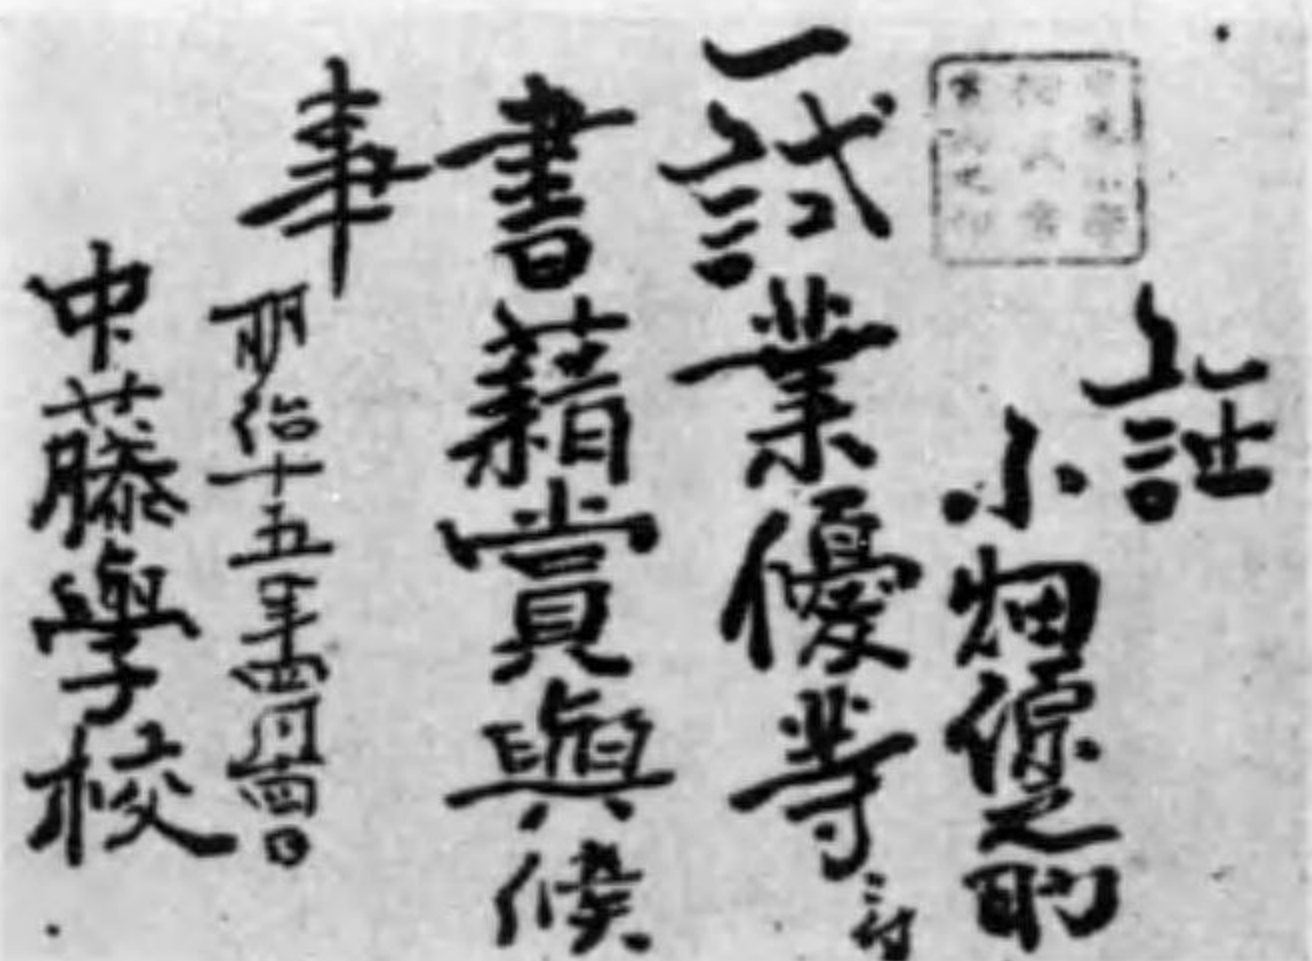 証
小畑源之助
一試業優等ニ付
書藉賞與候
事
明治十五年四月四日
中藤學校